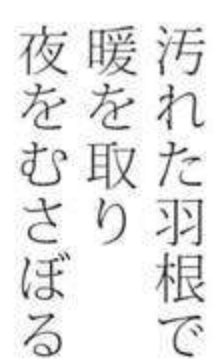 汚れた羽根で
暖を取り
夜をむさぼる